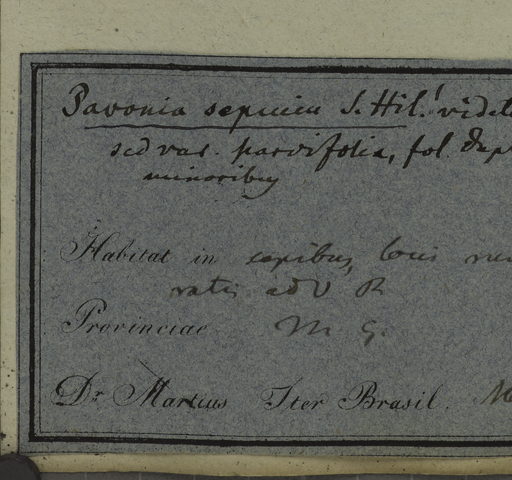 Pavonia sepium S. Hil.! videt
sed var. parvifolia, fol. dup
minoribus
Habitat in sepibus, locis
ad
Provinciae M. G.
Dr. Martius Iter Brasil. M